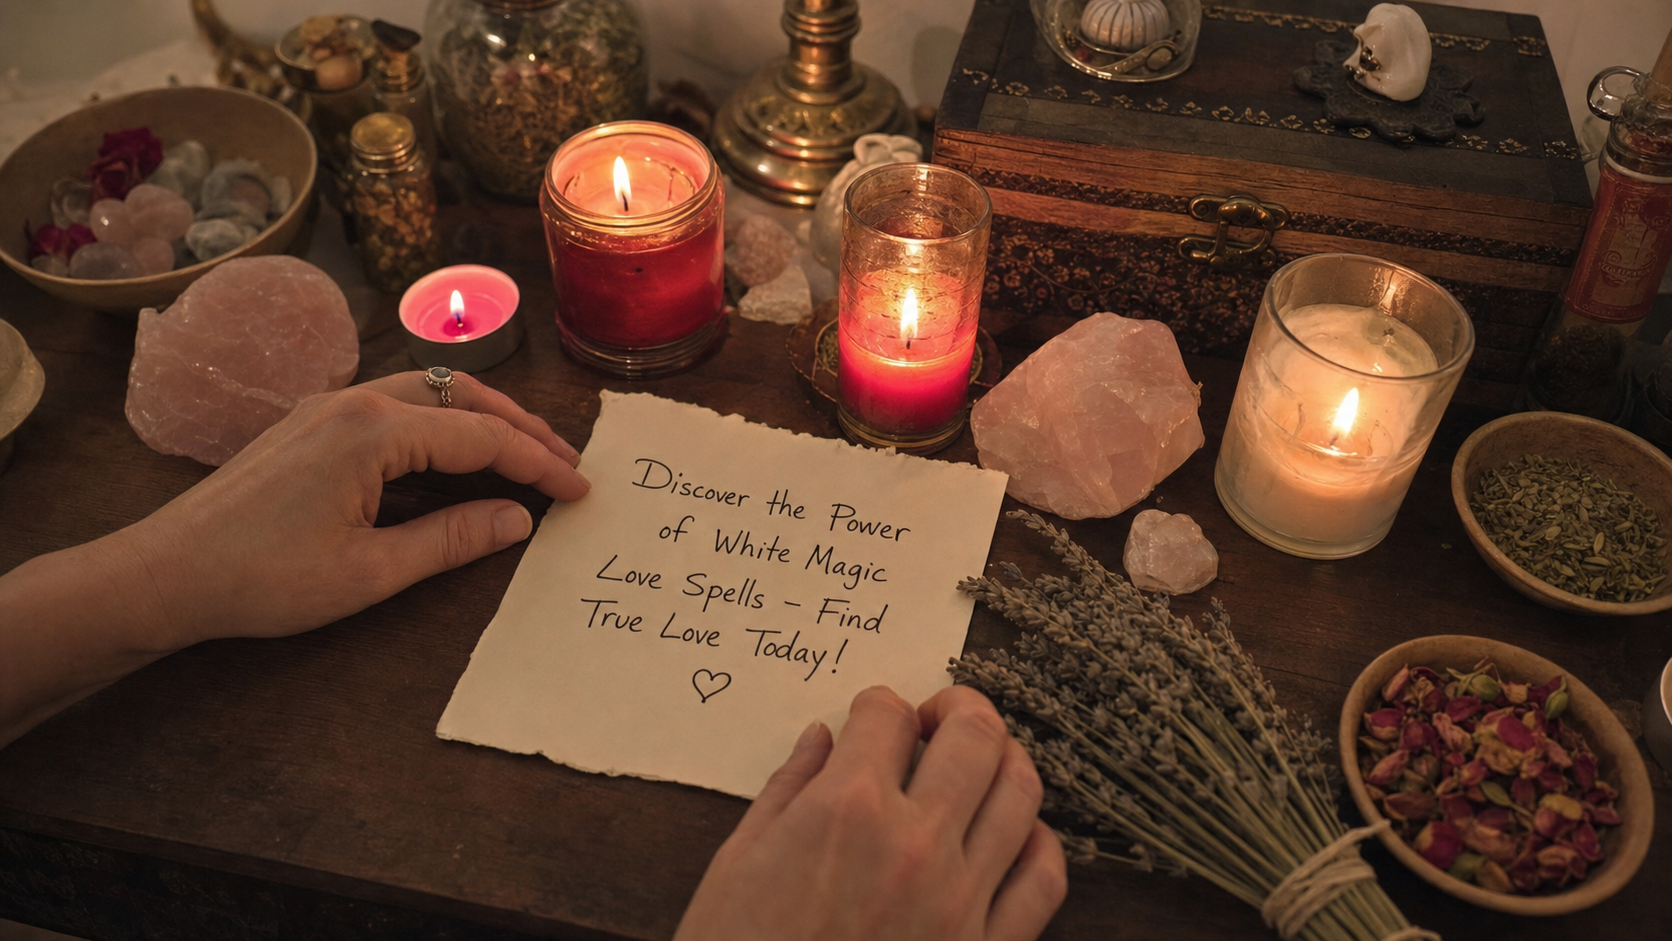 Discover the Power
of White Magic
Love Spells – Find
True Love Today!